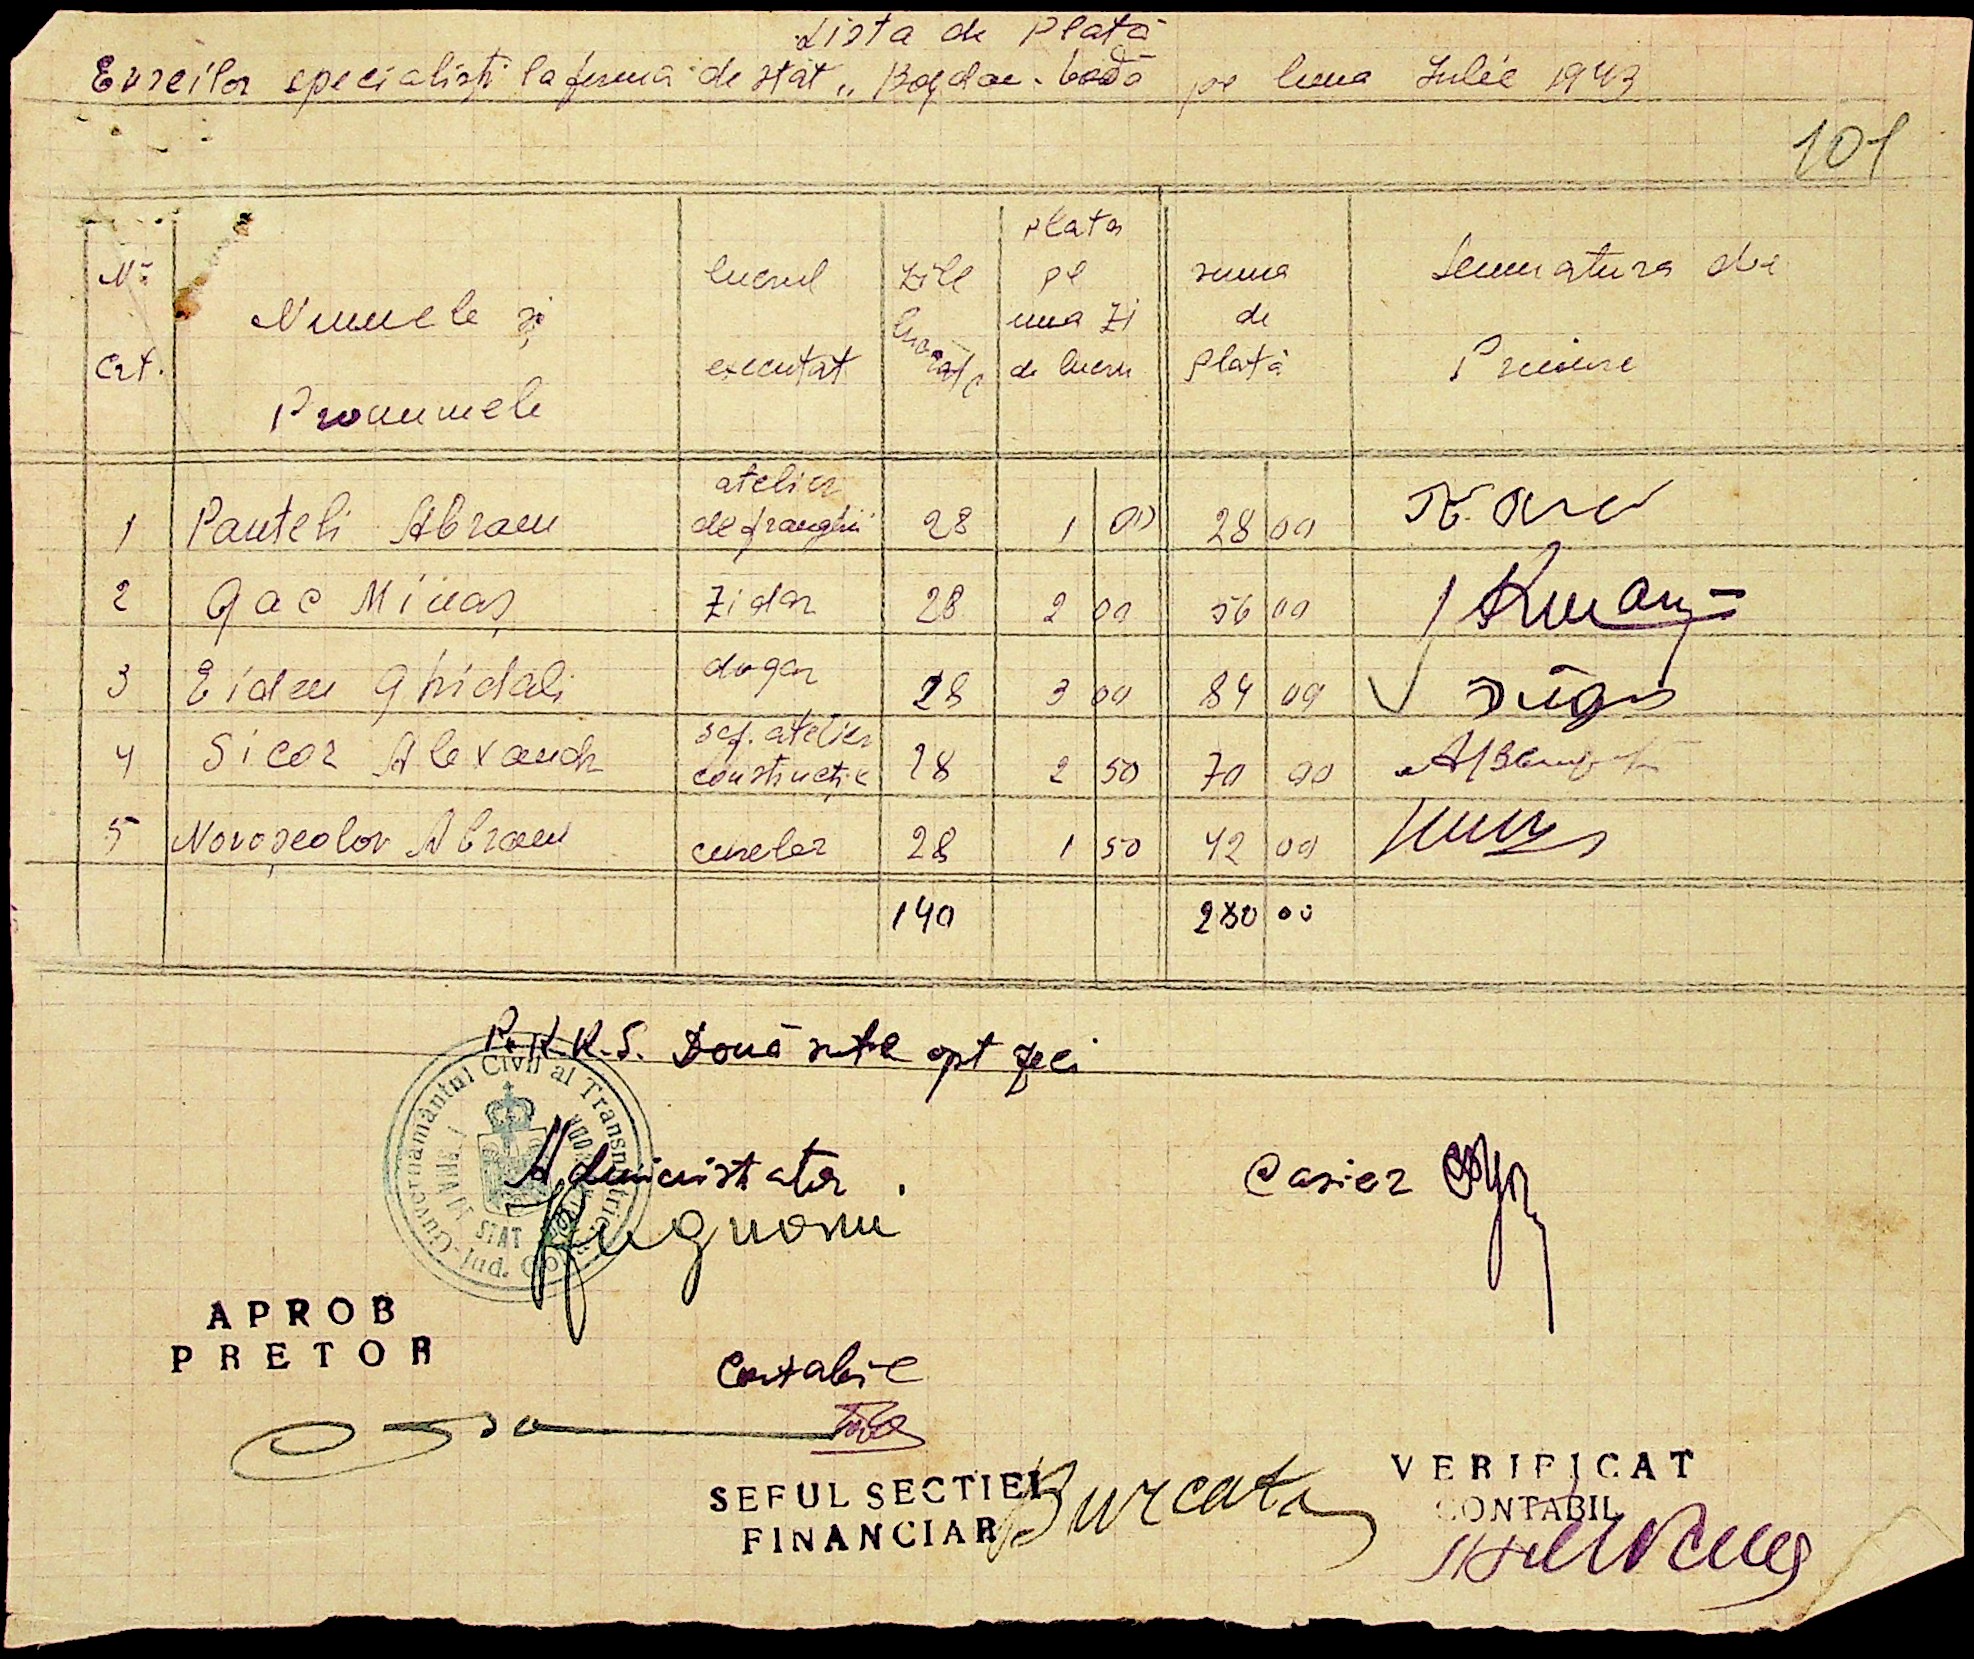 Lista de Plată
Evreilor specialiști la ferma de stat „Bogdan-Vodă pe luna Iulie 1943
101
No Crt.
Numele și Pronumele
lucrul executat
zile lucrate
plata pe una zi de lucru
suma de plată
Semnatura de Primire
1 Panteli Abram atelier de franghii 28 1 00 28 00
2 Gac Minaș zidar 28 2 00 56 00
3 Eidem Ghidali dogar 28 3 00 84 00
4 Sicor Alexandr șef. atelier construcție 28 2 50 70 00
5 Novoșeolov Abram curelar 28 1 50 42 00
140 280 00
R.K.K.S. Două sute opt zeci
Guvernământul Civil al Transnistriei
STAT
Jud.
Administrator
Casier
APROB
PRETOR
Contabil
SEFUL SECTIEI
FINANCIAR
VERIFICAT
CONTABIL